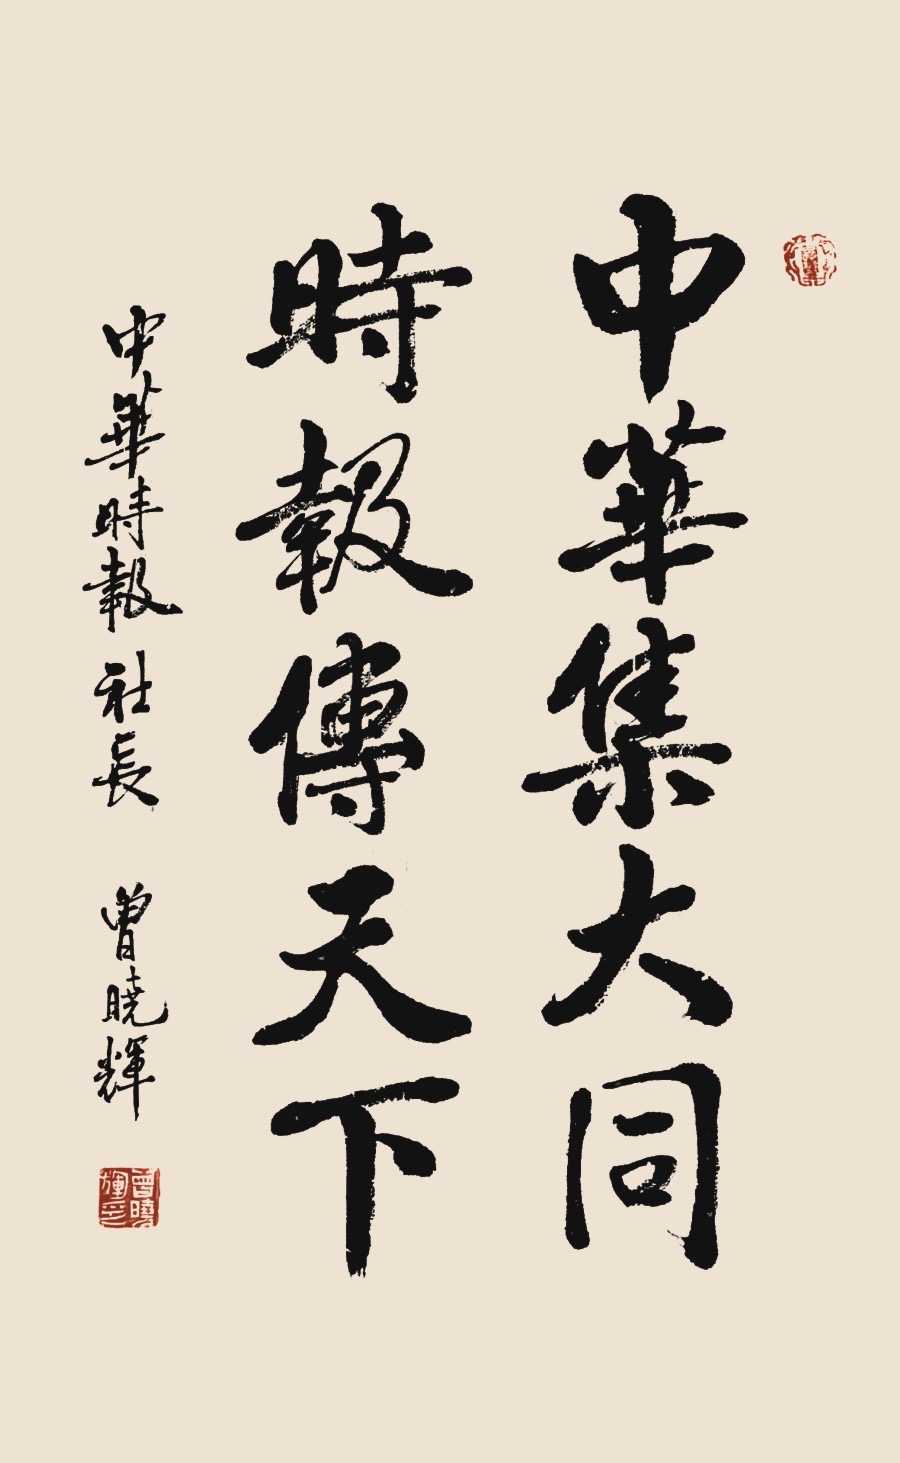 中華集大同
時報傳天下
中華時報社長 曾曉輝
曾曉輝印